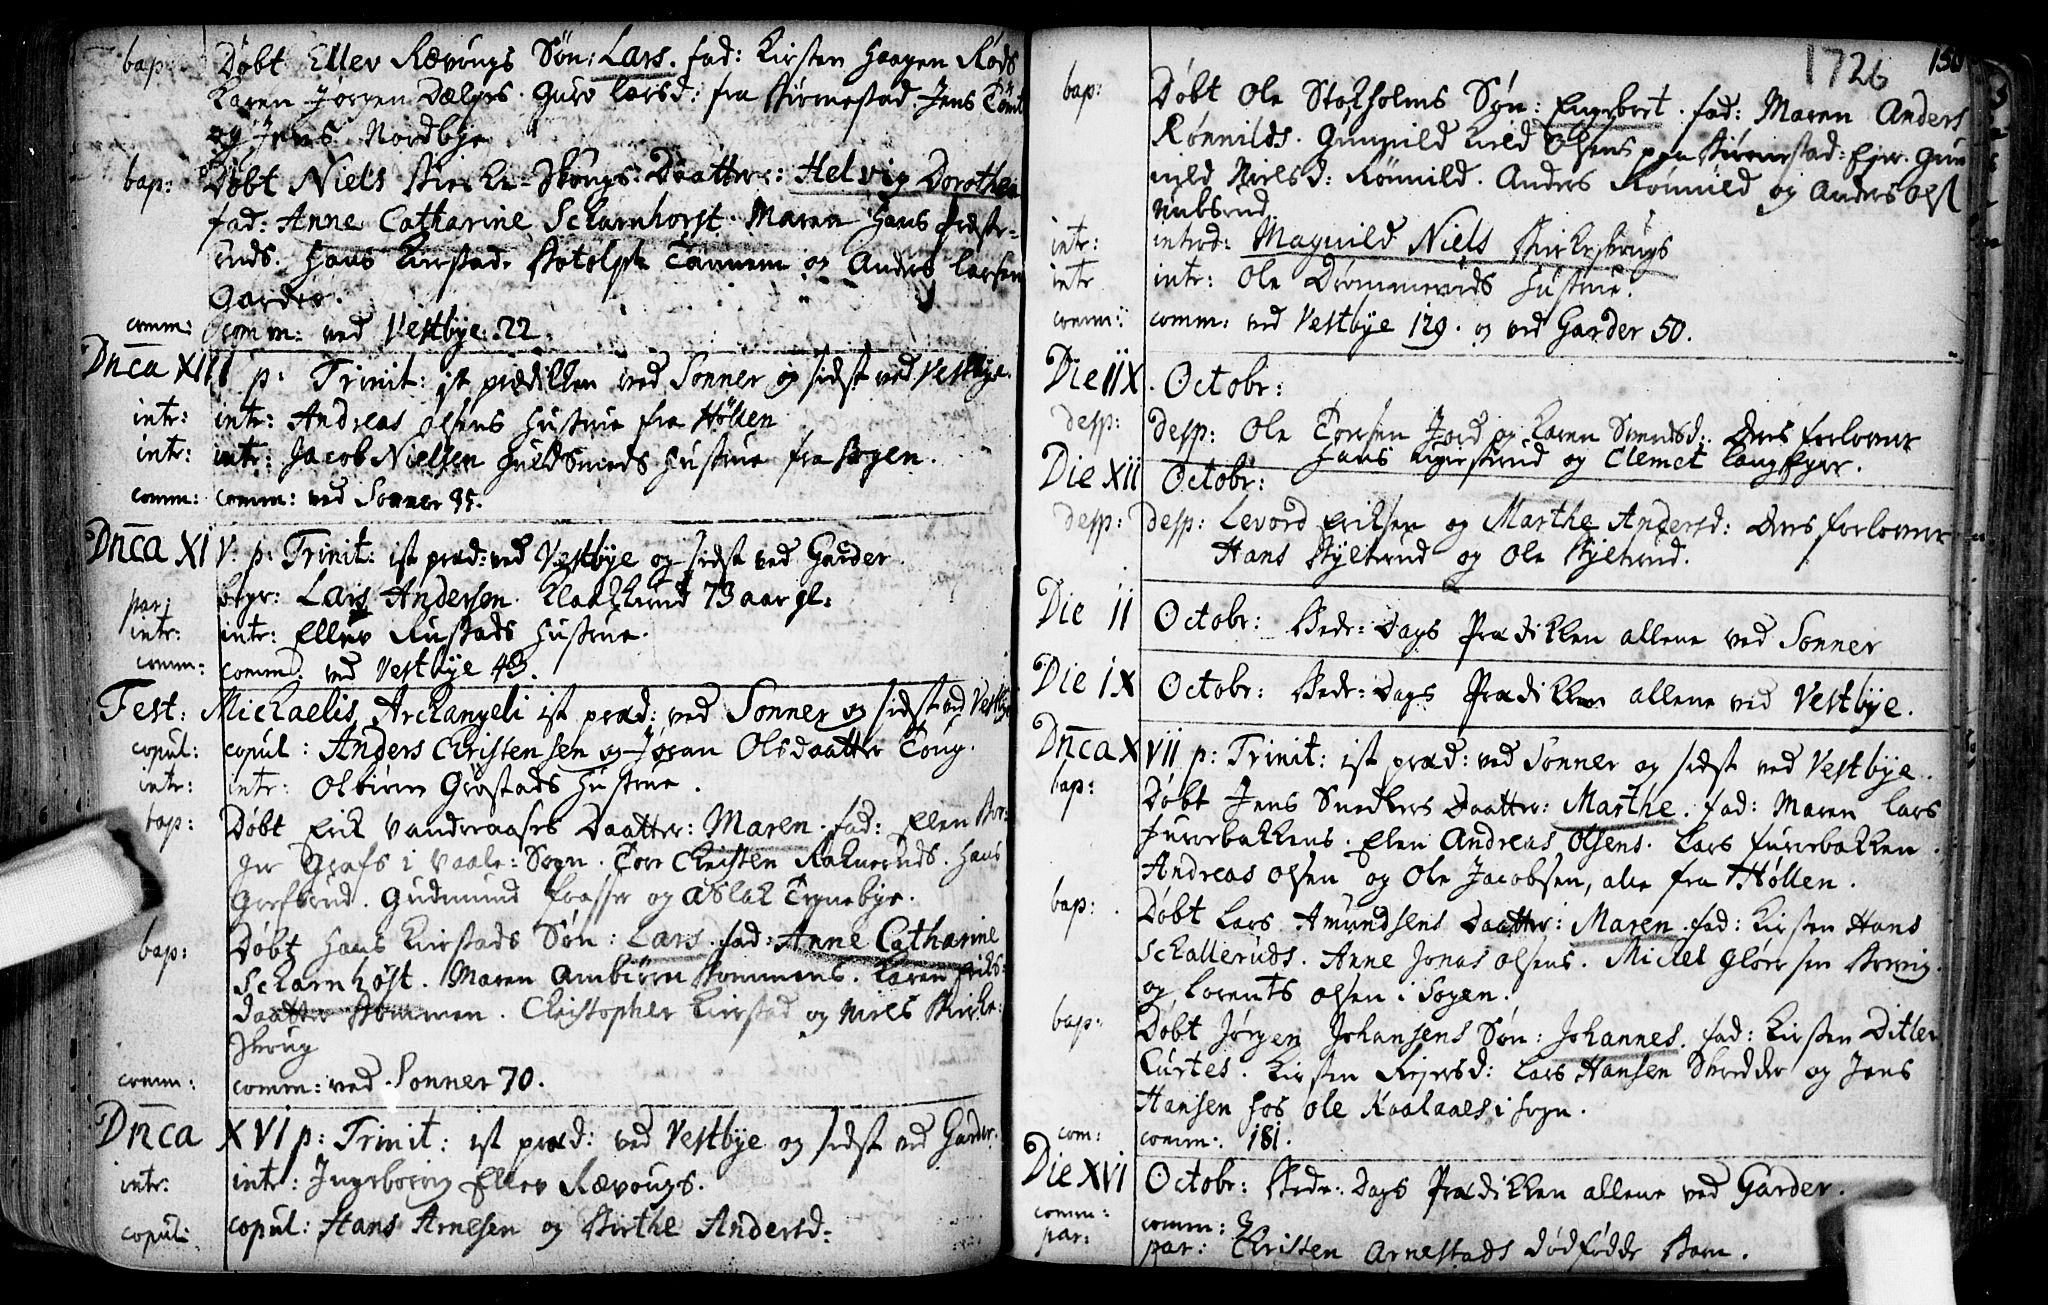 bap: Døbt Ellev Rævougs Søn: Lars. fad: Kirsten Haagen Røds
Karen Jørgen Dælfes. Guro Larsd: fra Kirnestad. Jens
og Jens Nordbye
bap: Døbt Niels Kierke-Skougs Daatter: Helvig Dorothea
fad: Anne Catharine Scharnhorst. Maren Hans
Hans Kirstad. Botolph Tannem og Anders Larsen
Garder.
comm: comm: ved Vestbye. 22.
Dnca XIII p: Trinit: ist prædikken ved Sonner og sidst ved Vestbye.
intr: intr: Andreas Olsens Hustrue fra Hölken
intr: intr: Jacob Nielsen Guldsmeds Hustrue fra Sogen.
comm: comm: ved Sonner 95.
Dnca XIV. p: Trinit: ist præd: ved Vestbye og sidst ved Garder.
par: begr: Lars Andersen. Klakkerud 73 aar gl:
intr: intr: Ellev Rustads Hustrue.
comm: comm: ved Vestbye 43.
Fest: Michaelis Archangeli ist præd: ved Sonner og sidst ved Vestbye
copul: copul: Anders Christensen og Jøran Olsdaatter Toug.
intr: intr: Olbiørn Grøstads Hustrue.
bap: Døbt Erik Vanderaases Daatter: Maren. fad: Elen Bir-
ger Grafs i Vaale: Sogn. Tore Christen Rakneruds. Hans
Grefsrud. Gudmund Fraasser og Aslak Tegnebye.
bap: Døbt Hans Kirstads Søn: Lars. fad: Anne Catharine
Scharnhöst. Maren Ambiørn Kommens. Karen Eriks-
daatter Kommen. Christopher Kirstad og Niels Kirke-
Skoug
comm: comm: ved Sonner 70.
Dnca XVI p: Trinit: ist præd: ved Vestbye og sidst ved Garder.
intr: intr: Ingeborrig Ellev Rævougs.
copul: copul: Hans Arnesen og Birthe Andersd:
1726 150
bap: Døbt Ole Stokholms Søn: Engebort. fad: Maren Anders
Rønnilds. Gunnild Kield Olsens paa Kirnestad: Ejer. Gun
nild Nielsd: Rønnild. Anders Rønnild og Anders Olst
Nubsrud.
intr: introd: Magnild Niels Kirkeskougs
intr intr: Ole Drømmevids Hustrue.
comm: comm: ved Vestbye 129. og ved Garder 50.
Die IIX. Octobr:
desp: desp: Ole Torsen Jord og Karen Svendsd: Deris forlover
Hans Kierstrud og Clemet Langejer.
Die XII Octobr:
desp: desp: Levord Eriksen og Marthe Andersd: Deris forlover
Hans Kyltrud og Ole Kyltrud.
Die II Octobr: Bede-Dags Prædikken allene ved Sonner
Die IX Octobr: Bede-Dags Prædikken allene ved Vestbye.
Dnca XVII p: Trinit: ist præd: ved Sonner og sidst ved Vestbye.
bap: Døbt Jens Snedkers Daatter: Marthe. fad: Maren Lars
Furrebakkens. Elen Andreas Olsens. Lars Furrebakken.
Andreas Olsen og Ole Jacobsen, alle fra Høllen.
bap: Døbt Lars Amundsens Daatter: Maren. fad: Kirsten Hans
Schalleruds. Anne Jonas Olsens. Mickel Glørsen Krvig.
og Lorents Olsen i Sogen.
bap: Døbt Jørgen Johansens Søn: Johannes. fad: Kirsten Ditler
Curtes. Kirsten Rejersd: Lars Hansen Skredder og Jens
Hansen hos Ole Kaalaaes i Sogn.
com: comm: 181.
Die XVI Octobr: Bede-Dags Prædikken allene ved Garder.
comm: comm: 3
par: par: Christen Arnestads dødfødde Barn.